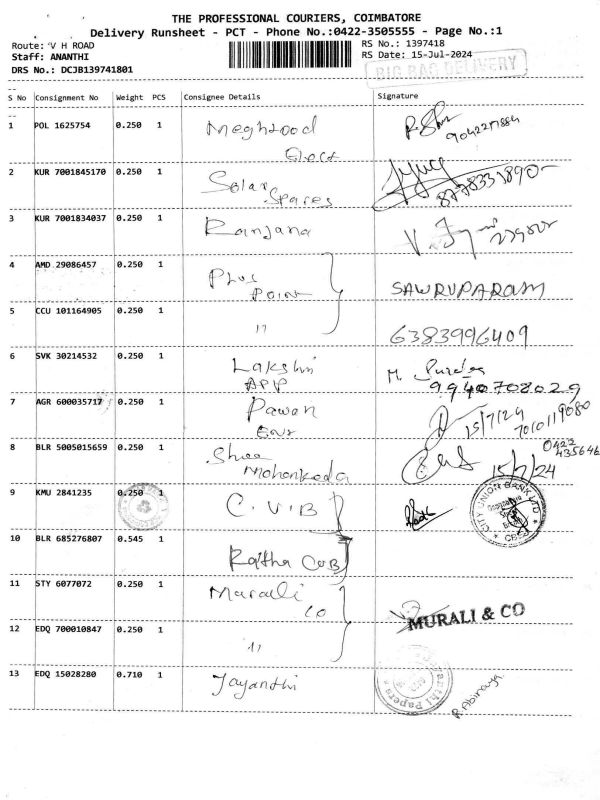 THE PROFESSIONAL COURIERS, COIMBATORE
Delivery Runsheet - PCT - Phone No.:0422-3505555 - Page No.:1
Route: V H ROAD
RS No.: 1397418
Staff: ANANTHI
RS Date: 15-Jul-2024
DRS No.: DCJB139741801
BIG BAG DELIVERY
S No Consignment No Weight PCS Consignee Details Signature
1 POL 1625754 0.250 1 Meghdood
2 KUR 7001845170 0.250 1 Solar
Spares
3 KUR 7001834037 0.250 1 Ranjana
4 AMD 29086457 0.250 1 Plus
Point SAWRUPARAM
5 CCU 101164905 0.250 1 " 6383996409
6 SVK 30214532 0.250 1 Lakshmi
APP
9940708029
7 AGR 600035717 0.250 1 Pawan
15/7/24
7010119080
8 BLR 5005015659 0.250 1 Shree
15/7/24
0422
435646
9 KMU 2841235 0.250 1 C.V.B
CITY UNION BANK LTD
CBE
10 BLR 685276807 0.545 1
11 STY 6077072 0.250 1 Murali
CO
MURALI & CO
12 EDQ 700010847 0.250 1 "
13 EDQ 15028280 0.710 1 Jayanthi
Jayanthi Papers
R. Abinaya